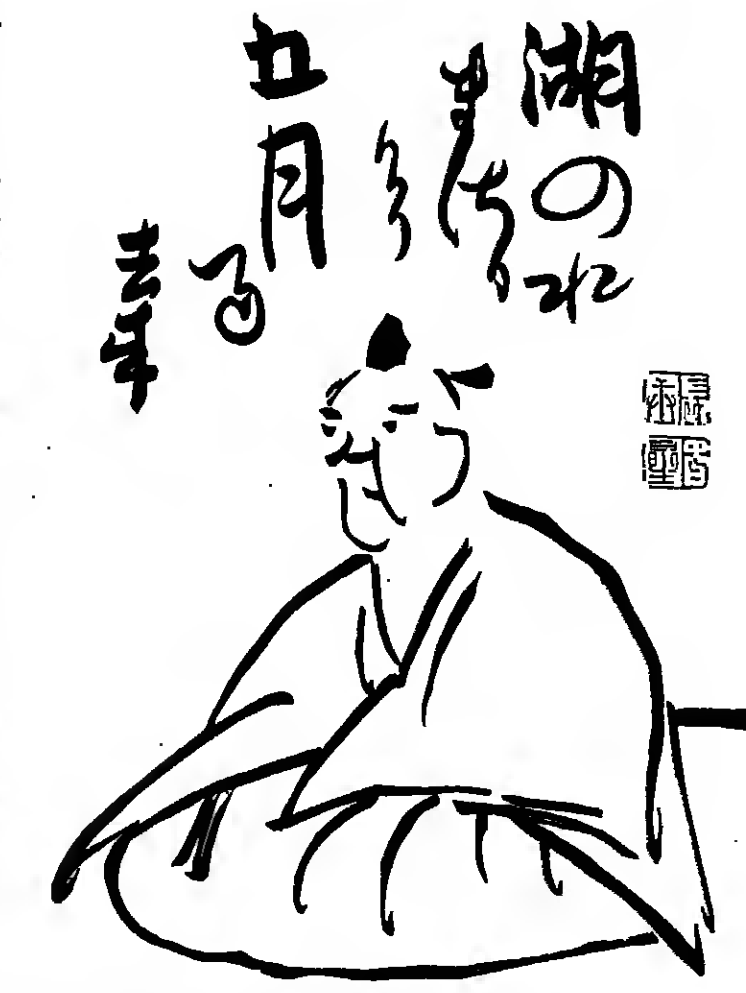 湖の水
まさり
けり
五月
雨
去来